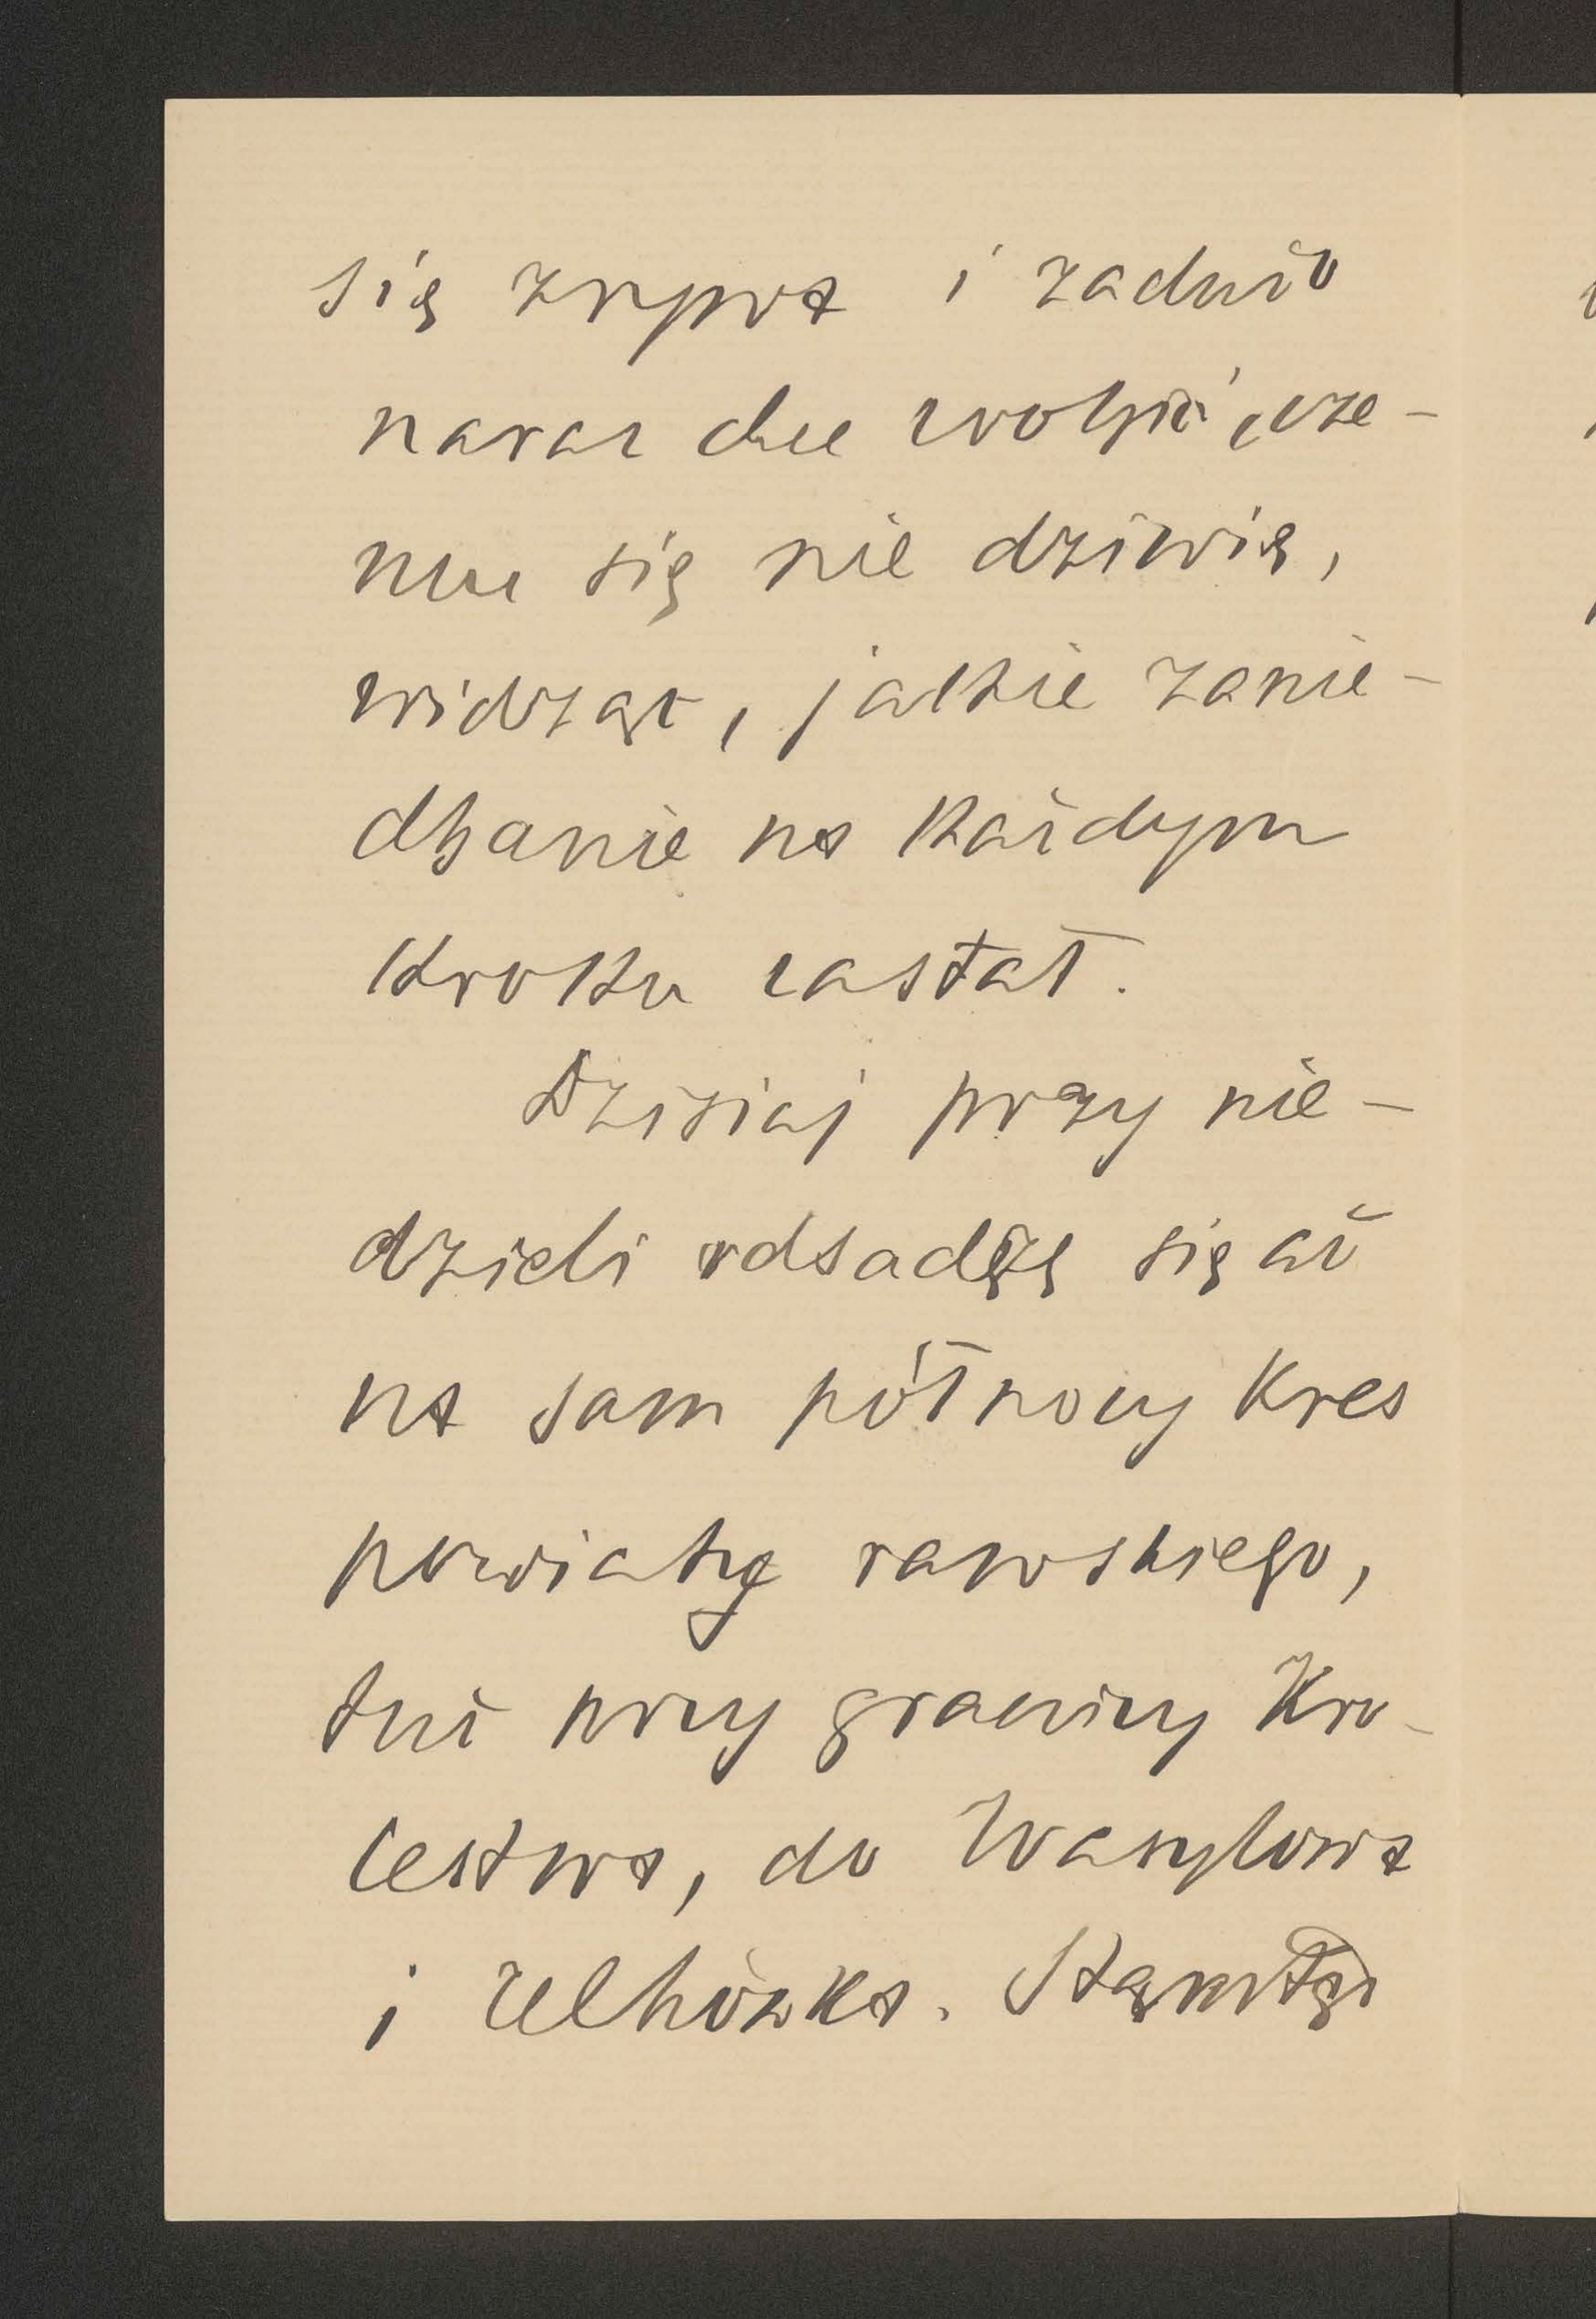 się zrywa i zadużo
naraz chce zrobić, cze-
mu się nie dziwię,
widząc, jakie zanie-
dbanie na każdym
kroku zastał.
Dzisiaj przy nie-
dzieli odsadzę się aż
na sam północny kres
powiatu rawskiego,
tuż przy granicy Kró-
lestwa, do Wasylowa
i Uhnówka. Stamtąd